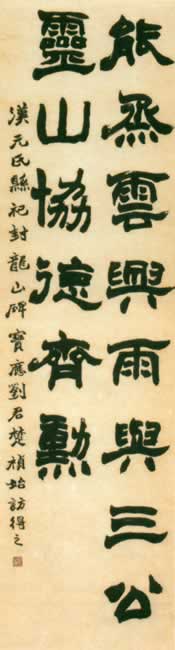 能烝雲興雨與三公
靈山協德齊勳
漢元氏縣祀封龍山碑寶應劉君楚楨始訪得之